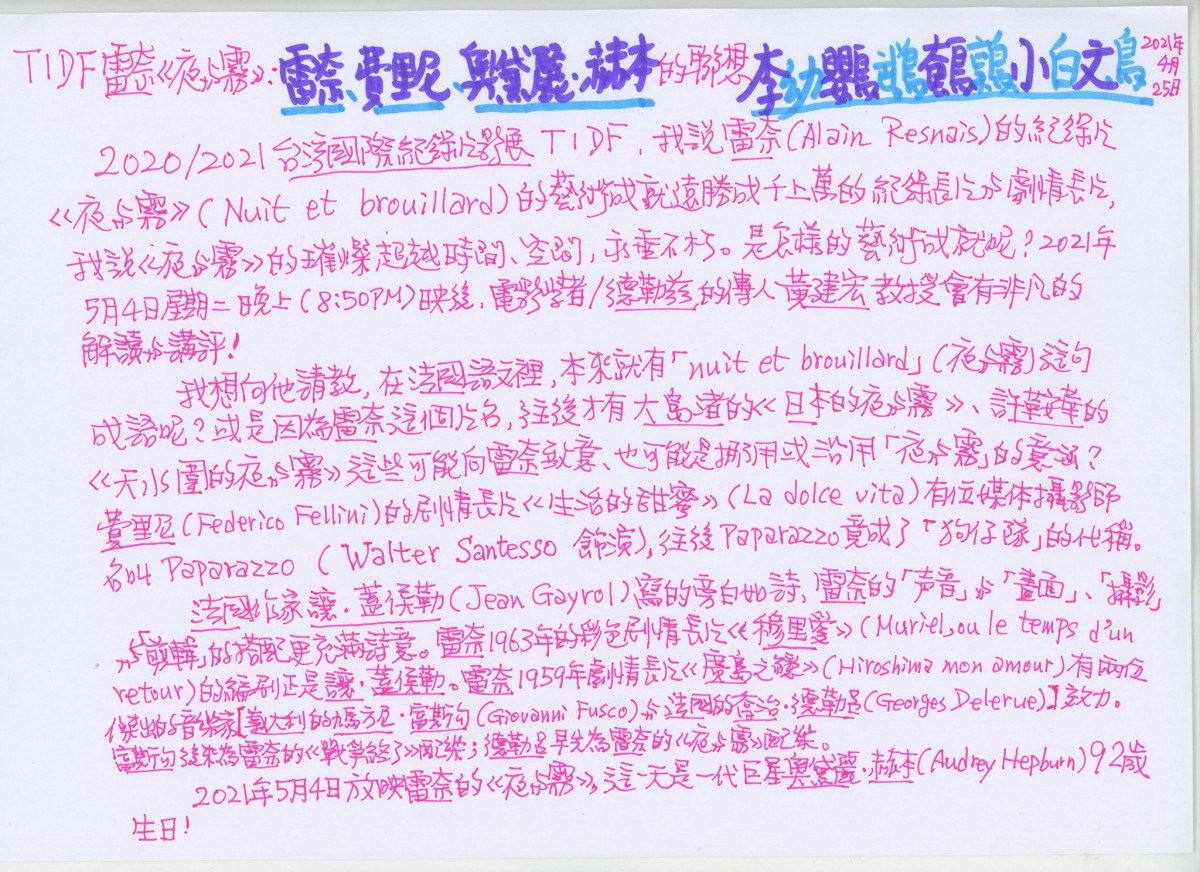 TIDF雷奈《夜與霧》:雷奈、費里尼、奧黛麗·赫本的聯想 李幼鸚鵡鵪鶉小白文鳥 2021年4月25日
2020/2021台灣國際紀錄片影展TIDF,我說雷奈(Alain Resnais)的紀錄片
《夜與霧》(Nuit et brouillard)的藝術成就遠勝成千上萬的紀錄長片與劇情長片,
我說《夜與霧》的璀燦超越時間、空間,永垂不朽。是怎樣的藝術成就呢?2021年
5月4日星期二晚上(8:50PM)映後,電影學者/德勒茲的傳人黃建宏教授會有非凡的
解讀與講評!
我想向他請教,在法國語文裡,本來就有「nuit et brouillard」(夜與霧)這句
成語呢?或是因為雷奈這個片名,往後才有大島渚的《日本的夜與霧》、許鞍華的
《天水圍的夜與霧》這些可能向雷奈致意、也可能是挪用或沿用「夜與霧」的意涵?
費里尼(Federico Fellini)的劇情長片《生活的甜蜜》(La dolce vita)有位媒体攝影師
名叫Paparazzo(Walter Santesso飾演),往後Paparazzo竟成了「狗仔隊」的代稱。
法國作家讓·蓋侯勒(Jean Gayrol)寫的旁白如詩,雷奈的「声音」與「畫面」、「攝影」
與「剪輯」的搭配更充滿詩意。雷奈1963年的彩色劇情長片《穆里愛》(Muriel, ou le temps d'un
retour)的編劇正是讓·蓋侯勒。雷奈1959年劇情長片《廣島之戀》(Hiroshima mon amour)有兩位
傑出的音樂家[義大利的喬方尼·富斯句(Giovanni Fusco)與法國的喬治·德勒呂(Georges Delerue)]效力。
富斯句後來為雷奈的《戰爭終了》配樂;德勒呂早先為雷奈的《夜與霧》配樂。
2021年5月4日放映雷奈的《夜與霧》,這一天是一代巨星奧黛麗·赫本(Audrey Hepburn)92歲
生日!